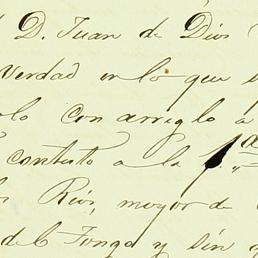 D. Juan de Dios
Verdad en lo que
con arreglo a
contesto a la 1.ª
Rios, mayor de
del Tongo y sin